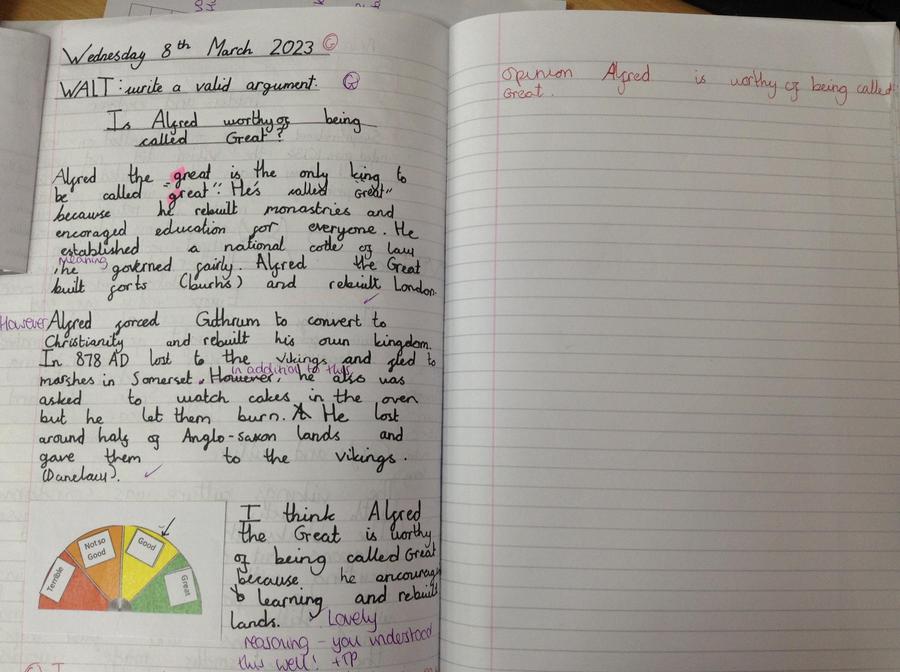 Wednesday 8th March 2023 G
WALT: write a valid argument. G
Is Alfred worthy of being
called Great?
Alfred the great is the only king to
be called "great". He's called "Great"
because he rebuilt monastries and
encoraged education for everyone. He
established a national code of law
meaning
, he governed fairly. Alfred the Great
built forts (burhs) and rebuilt London.
However Alfred forced Guthrum to convert to
Christianity and rebuilt his own kingdom.
In 878 AD lost to the vikings and fled to
in addition to this,
marshes in Somerset. However, he also was
asked to watch cakes in the oven
but he let them burn. He lost
around half of Anglo-saxon lands and
gave them to the vikings.
(Danelaw).
Terrible
Not so
Good
Good
Great
I think Alfred
the Great is worthy
of being called Great
because he encourag
learning and rebuilt
lands. Lovely
reasoning - you understood
this well! +TP
opinion Alfred is worthy of being called
Great.